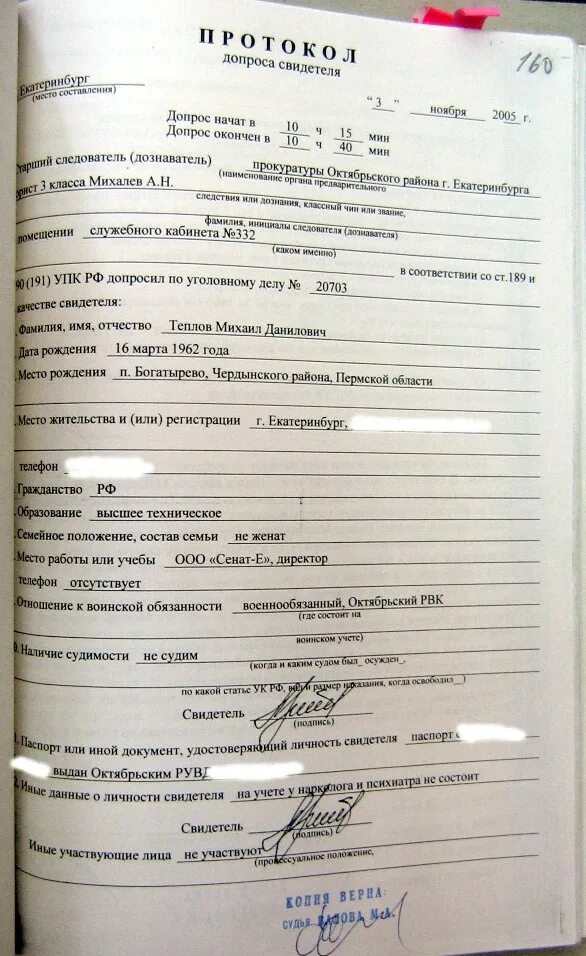 160
ПРОТОКОЛ
допроса свидетеля
Екатеринбург
(место составления)
“ 3 ” ноября 2005 г.
Допрос начат в 10 ч 15 мин
Допрос окончен в 10 ч 40 мин
тарший следователь (дознаватель) прокуратуры Октябрьского района г. Екатеринбурга
(наименование органа предварительного
рист 3 класса Михалев А.Н.
следствия или дознания, классный чин или звание,
фамилия, инициалы следователя (дознавателя)
помещении служебного кабинета №332
(каком именно)
в соответствии со ст.189 и
90 (191) УПК РФ допросил по уголовному делу № 20703
качестве свидетеля:
. Фамилия, имя, отчество Теплов Михаил Данилович
. Дата рождения 16 марта 1962 года
. Место рождения п. Богатырево, Чердынского района, Пермской области
. Место жительства и (или) регистрации г. Екатеринбург,
телефон
. Гражданство РФ
. Образование высшее техническое
. Семейное положение, состав семьи не женат
. Место работы или учебы ООО «Сенат-Е», директор
телефон отсутствует
. Отношение к воинской обязанности военнообязанный, Октябрьский РВК
(где состоит на
воинском учете)
0. Наличие судимости не судим
(когда и каким судом был_ осужден_,
по какой статье УК РФ, вид и размер наказания, когда освободил_)
Свидетель
(подпись)
1. Паспорт или иной документ, удостоверяющий личность свидетеля паспорт с
выдан Октябрьским РУВД
2. Иные данные о личности свидетеля на учете у нарколога и психиатра не состоит
Свидетель
(подпись)
Иные участвующие лица не участвуют
(процессуальное положение,
КОПИЯ ВЕРНА:
СУДЬЯ М.А.